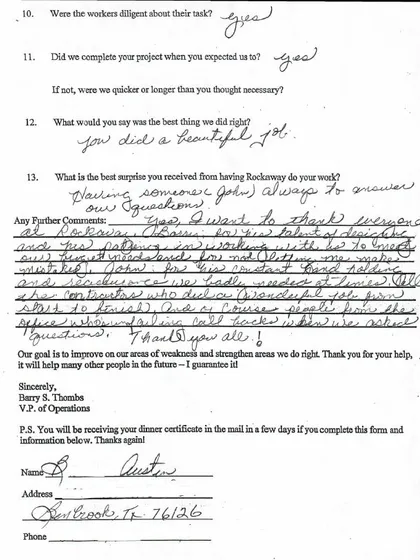 10. Were the workers diligent about their task? yes
11. Did we complete your project when you expected us to? yes
If not, were we quicker or longer than you thought necessary?
12. What would you say was the best thing we did right?
you did a beautiful job.
13. What is the best surprise you received from having Rockaway do your work?
Having someone (John) always to answer
our questions.
Any Further Comments: Yes, I want to thank everyone
at Rockaway. Barry for his talent of designing
and his patience in working with us to meet
our needs and for not letting me make
mistakes. John for his constant hand holding
and reassurance we badly needed at times. All
the contractors who did a wonderful job from
start to finish. And of course people from the
office who unfailing call backs when we asked
questions. Thank you all!
Our goal is to improve on our areas of weakness and strengthen areas we do right. Thank you for your help,
it will help many other people in the future – I guarantee it!
Sincerely,
Barry S. Thombs
V.P. of Operations
P.S. You will be receiving your dinner certificate in the mail in a few days if you complete this form and
information below. Thanks again!
Name B Austin
Address
Benbrook, Tx 76126
Phone